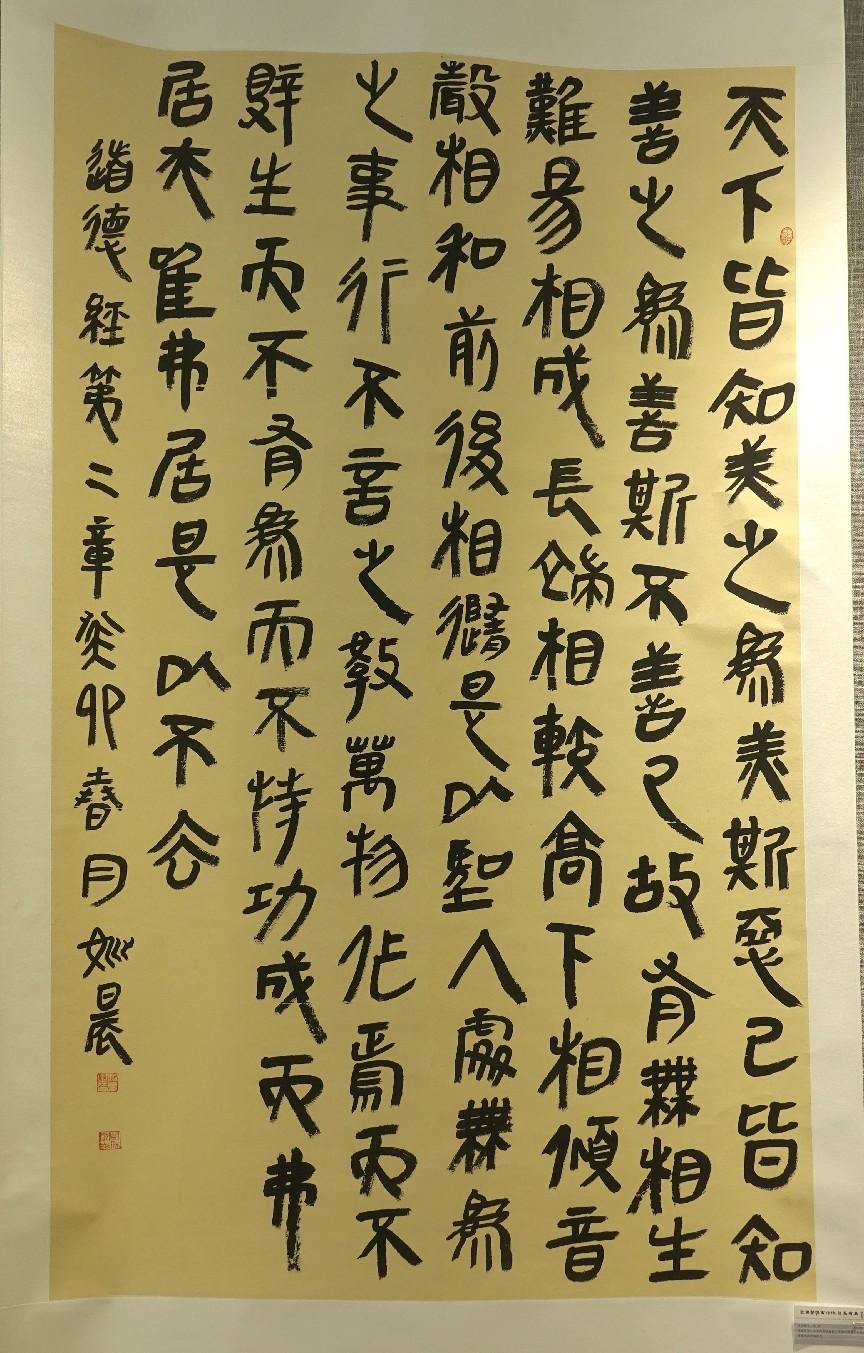 天下皆知美之為美斯惡已皆知
善之為善斯不善已故有無相生
難易相成長短相較高下相傾音
聲相和前後相隨是以聖人處無為
之事行不言之教萬物作焉而不
辭生而不有為而不恃功成而弗
居夫唯弗居是以不去
道德經第二章癸卯春月姚晨